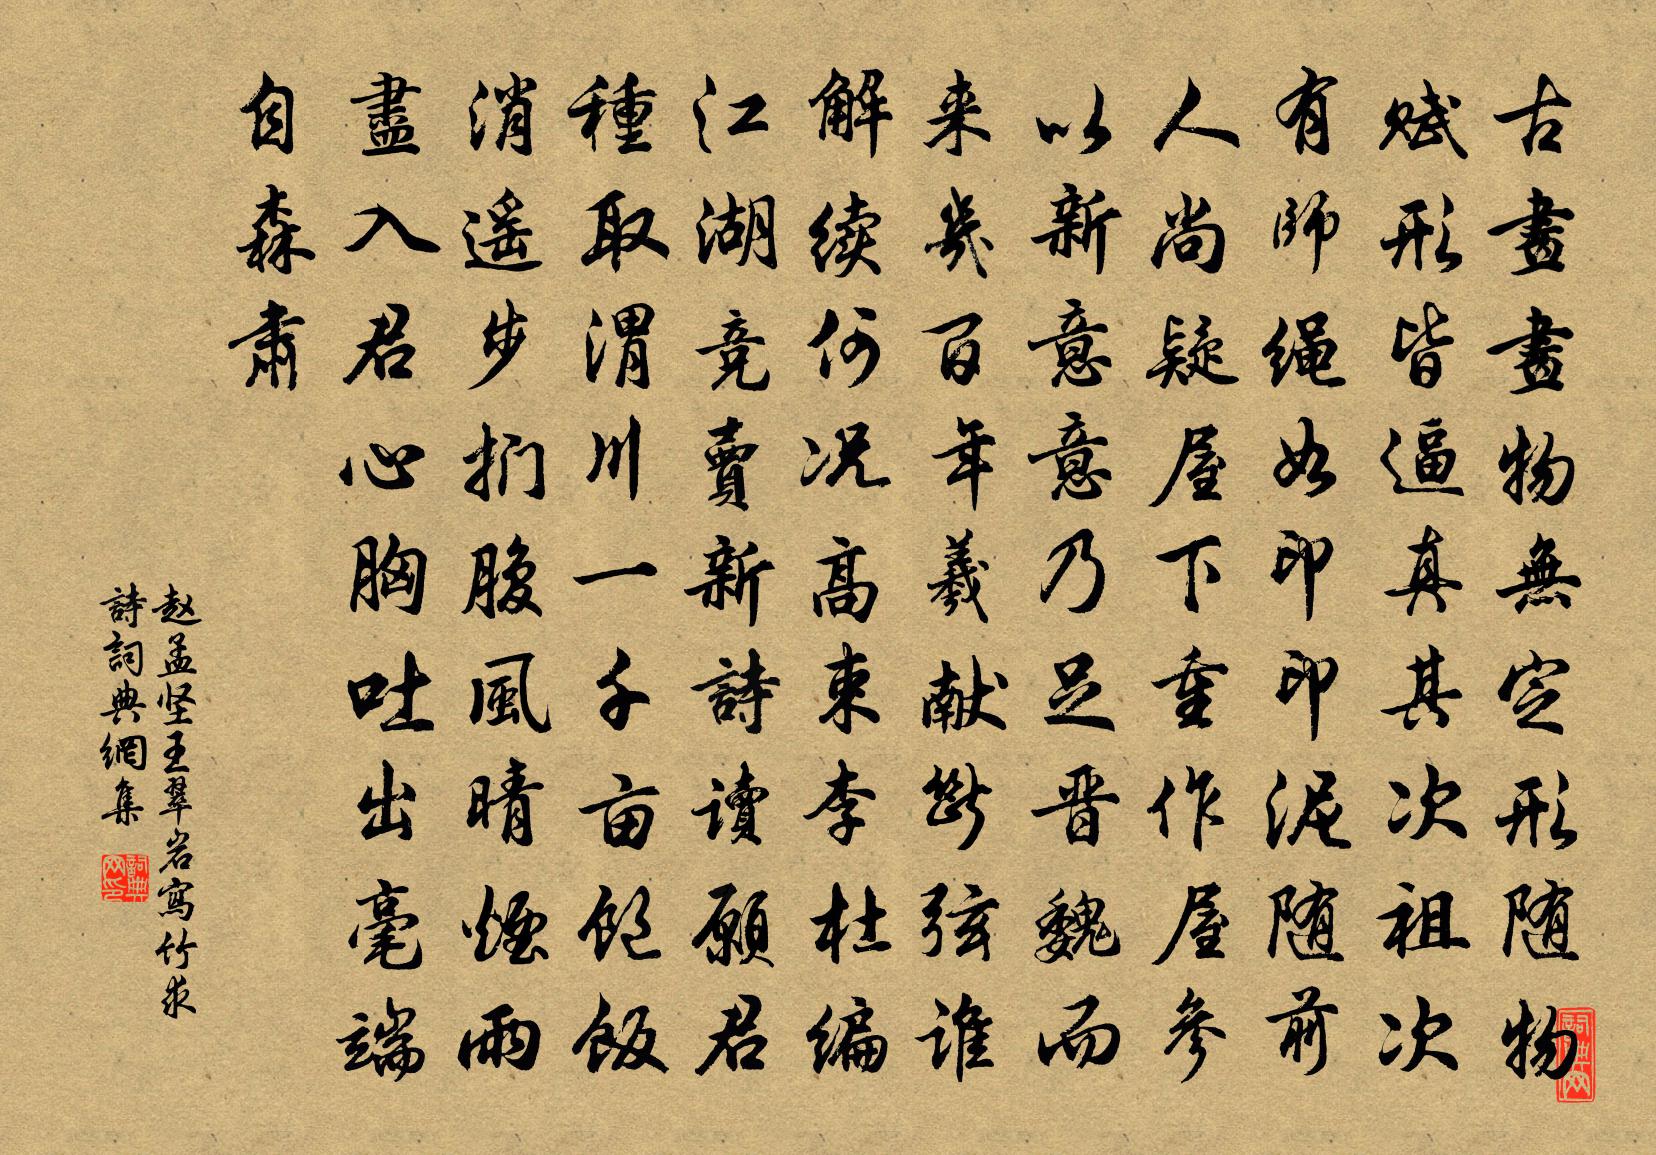 古畫畫物無定形随物
赋形皆逼真其次祖次
有師绳如印印泥随前
人尚疑屋下重作屋参
以新意意乃足晋魏而
来幾百年羲献斷弦誰
解續何况高束李杜编
江湖竞賣新詩讀願君
種取渭川一千亩飽飯
消遥步捫腹風晴煙雨
盡入君心胸吐出毫端
自森肅
赵孟坚王翠岩寫竹求
詩詞典網集
詞典网印
詞典网